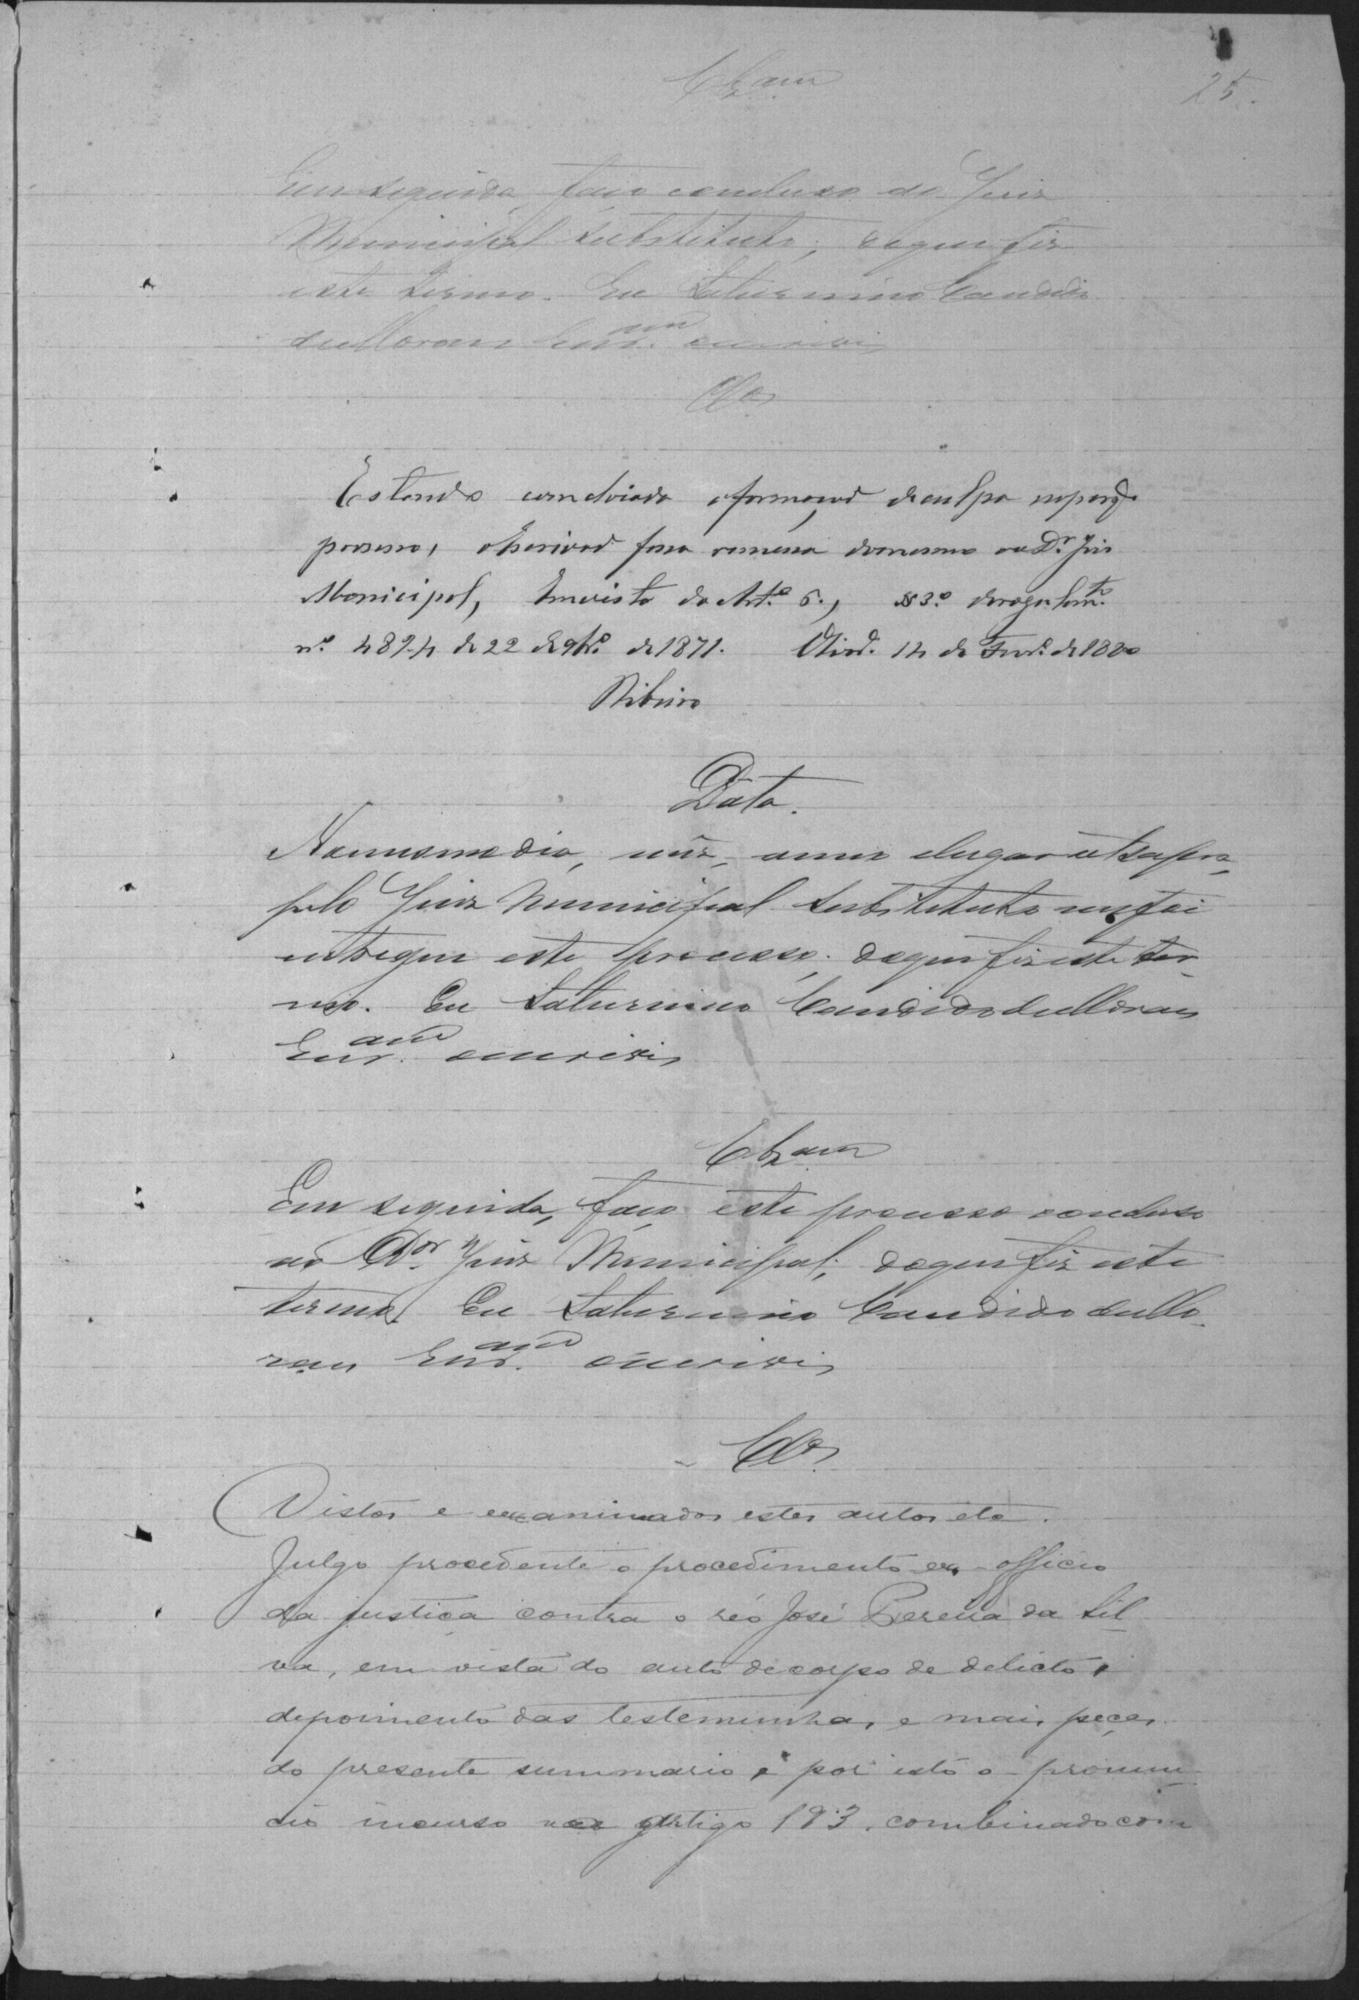 Clzam
25.
Em seguida, faço concluso ao Juiz
Municipal Substituto; do que fiz
este termo. Eu Saturnino Candido
de Moraes escrivi
Clos
Estando concluida a formaçaõ da culpa no pres.e
processo, o Escrivaõ faça remessa do mesmo ao Dr. Juis
Municipal, em vista do Art.º 6., § 3.º do regulamto.
n.º 4824 de 22 de 9br.º de 1871. 14 de Fevr. de 1880
Ribeiro
Data.
No mesmo dia, mez, anno e lugar retrapro,
pelo Juiz Municipal Substituto me foi
entregue este processo; do que fiz este ter-
mo. Eu Saturnino Candido de Moraes
escrivi
Clzam
Em seguida, faço este processo concluso
ao Dor. Juiz Municipal; do que fiz este
termo. Eu Saturnino Candido de Mo-
raes escrivi
Clos
Vistos e examinados estes autos etc.
Julgo procedente o procedimento ex-officio
da justiça contra o réo José Pereira da Sil-
va, em vista do auto de corpo de delicto,
depoimento das testemunhas e mais peças
do presente summario, e por isto o pronun-
cio incurso no artigo 193. combinado com